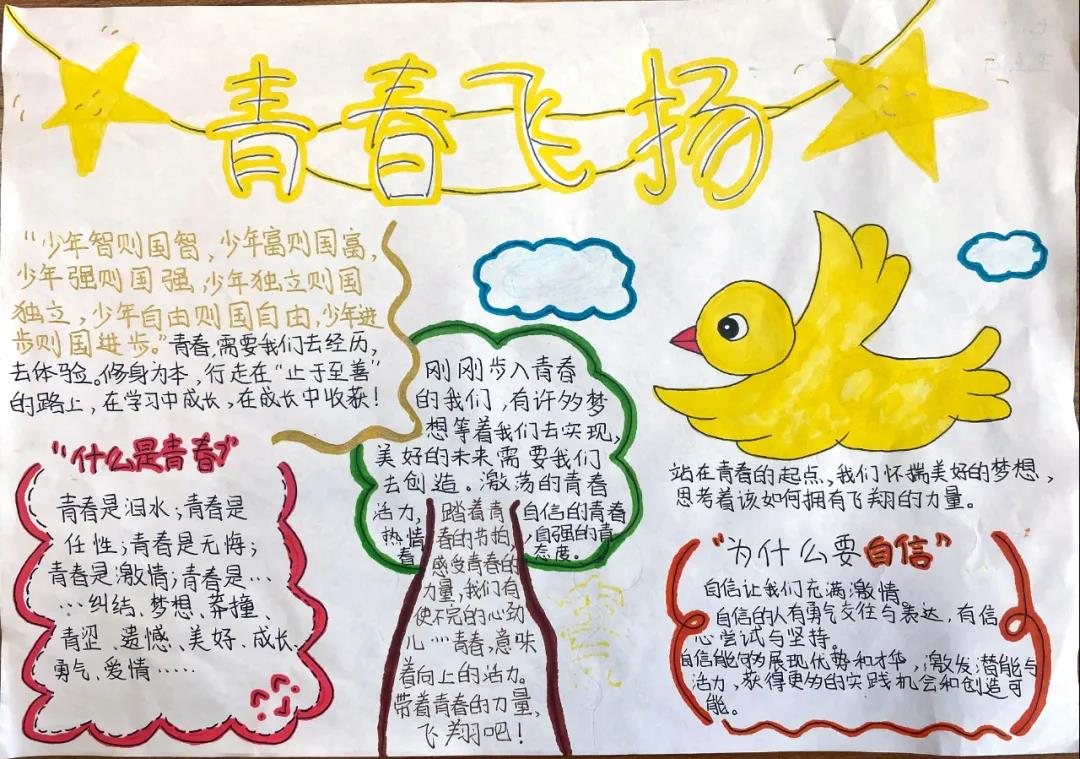 青春飞扬
“少年智则国智，少年富则国富，
少年强则国强，少年独立则国
独立，少年自由则国自由，少年进
步则国进步。”青春，需要我们去经历，
去体验。修身为本，行走在“止于至善”
的路上，在学习中成长，在成长中收获！
“什么是青春？”
青春是泪水；青春是
任性；青春是无悔；
青春是激情；青春是…
…纠结、梦想、莽撞、
青涩、遗憾、美好、成长、
勇气、爱情……
刚刚步入青春
的我们，有许多梦
想等着我们去实现，
美好的未来需要我们
去创造。激荡的青春
活力，踏着青，自信的青春
热情春的节拍，，自强的青
春感受青春的态度。
力量，我们有
使不完的心劲
儿……青春，意味
着向上的活力。
带着青春的力量，
飞翔吧！
站在青春的起点，我们怀揣美好的梦想，
思考着该如何拥有飞翔的力量。
“为什么要自信”
自信让我们充满激情
自信的人有勇气交往与表达，有信
心尝试与坚持。
自信能够展现优势和才华，激发潜能与
活力，获得更多的实践机会和创造可
能。